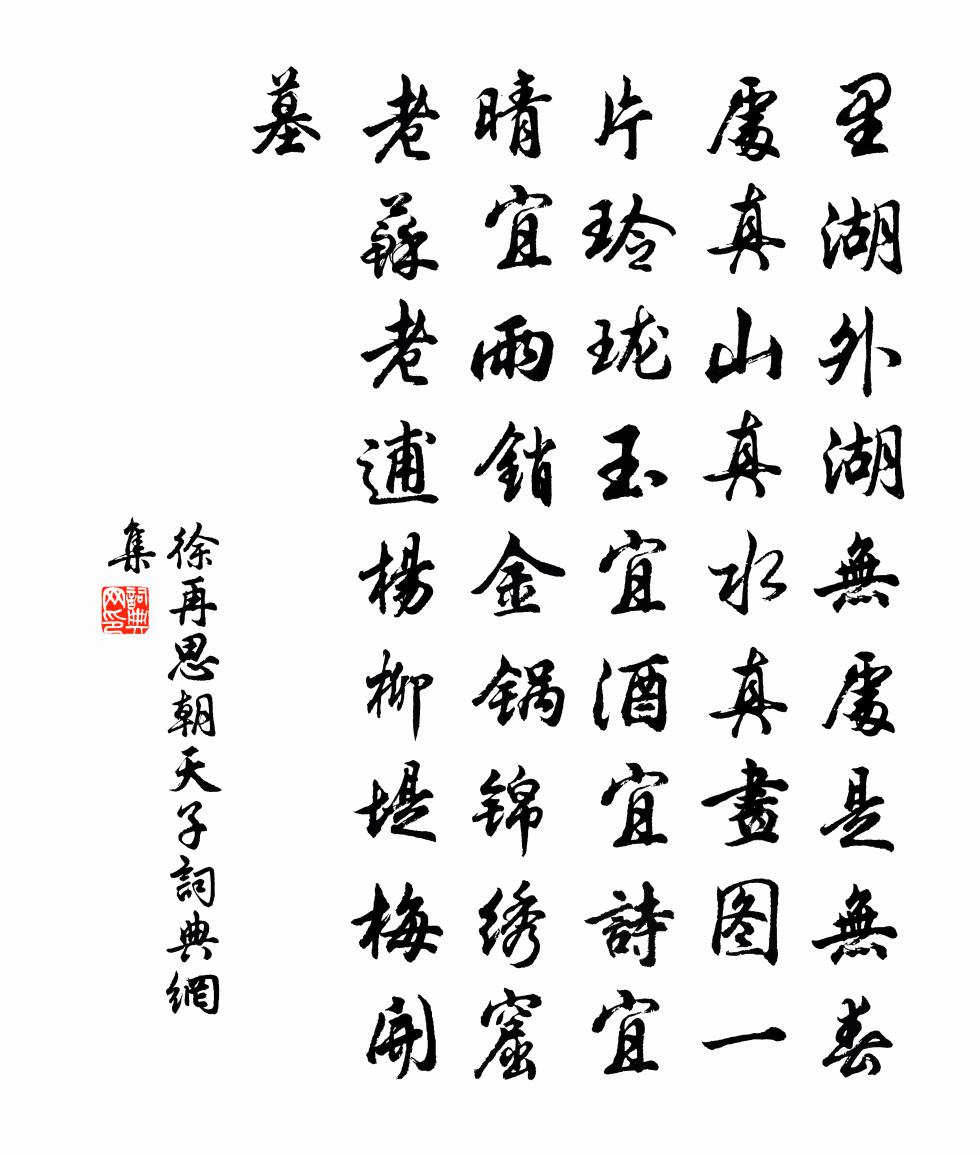 里湖外湖無處是無春
處真山真水真畫图一
片玲珑玉宜酒宜詩宜
晴宜雨銷金锅锦绣窟
老蘇老逋楊柳堤梅開
墓
徐再思朝天子詞典網
集
詞典网印